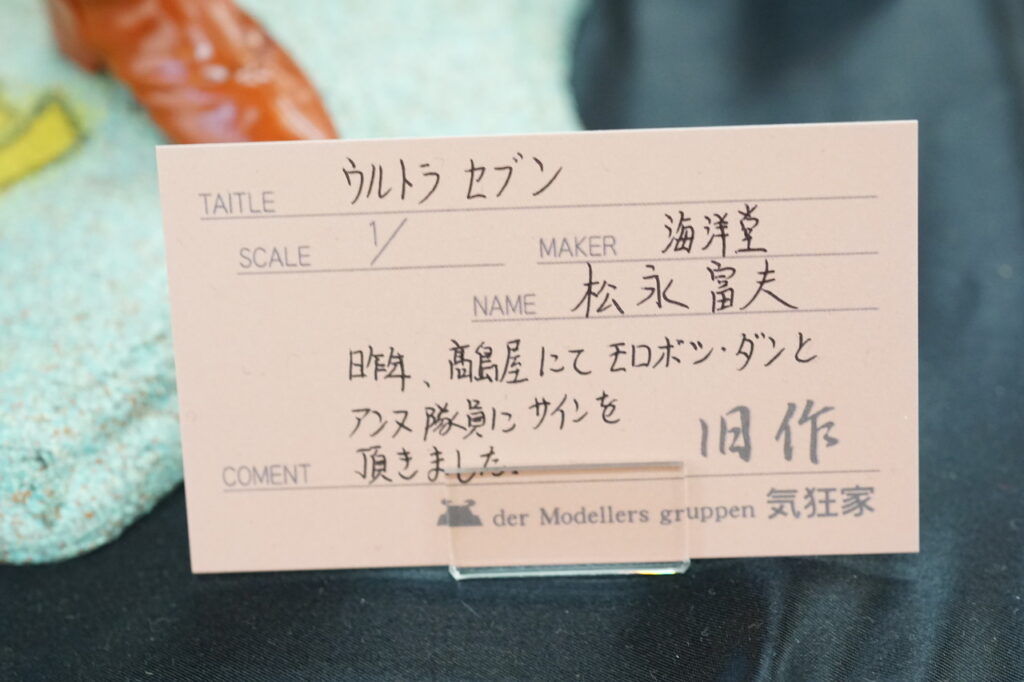 TAITLE ウルトラセブン
SCALE 1/
MAKER 海洋堂
NAME 松永富夫
昨年、髙島屋にてモロボシ・ダンと
アンヌ隊員にサインを
頂きました。
旧作
COMENT
der Modellers gruppen 気狂家